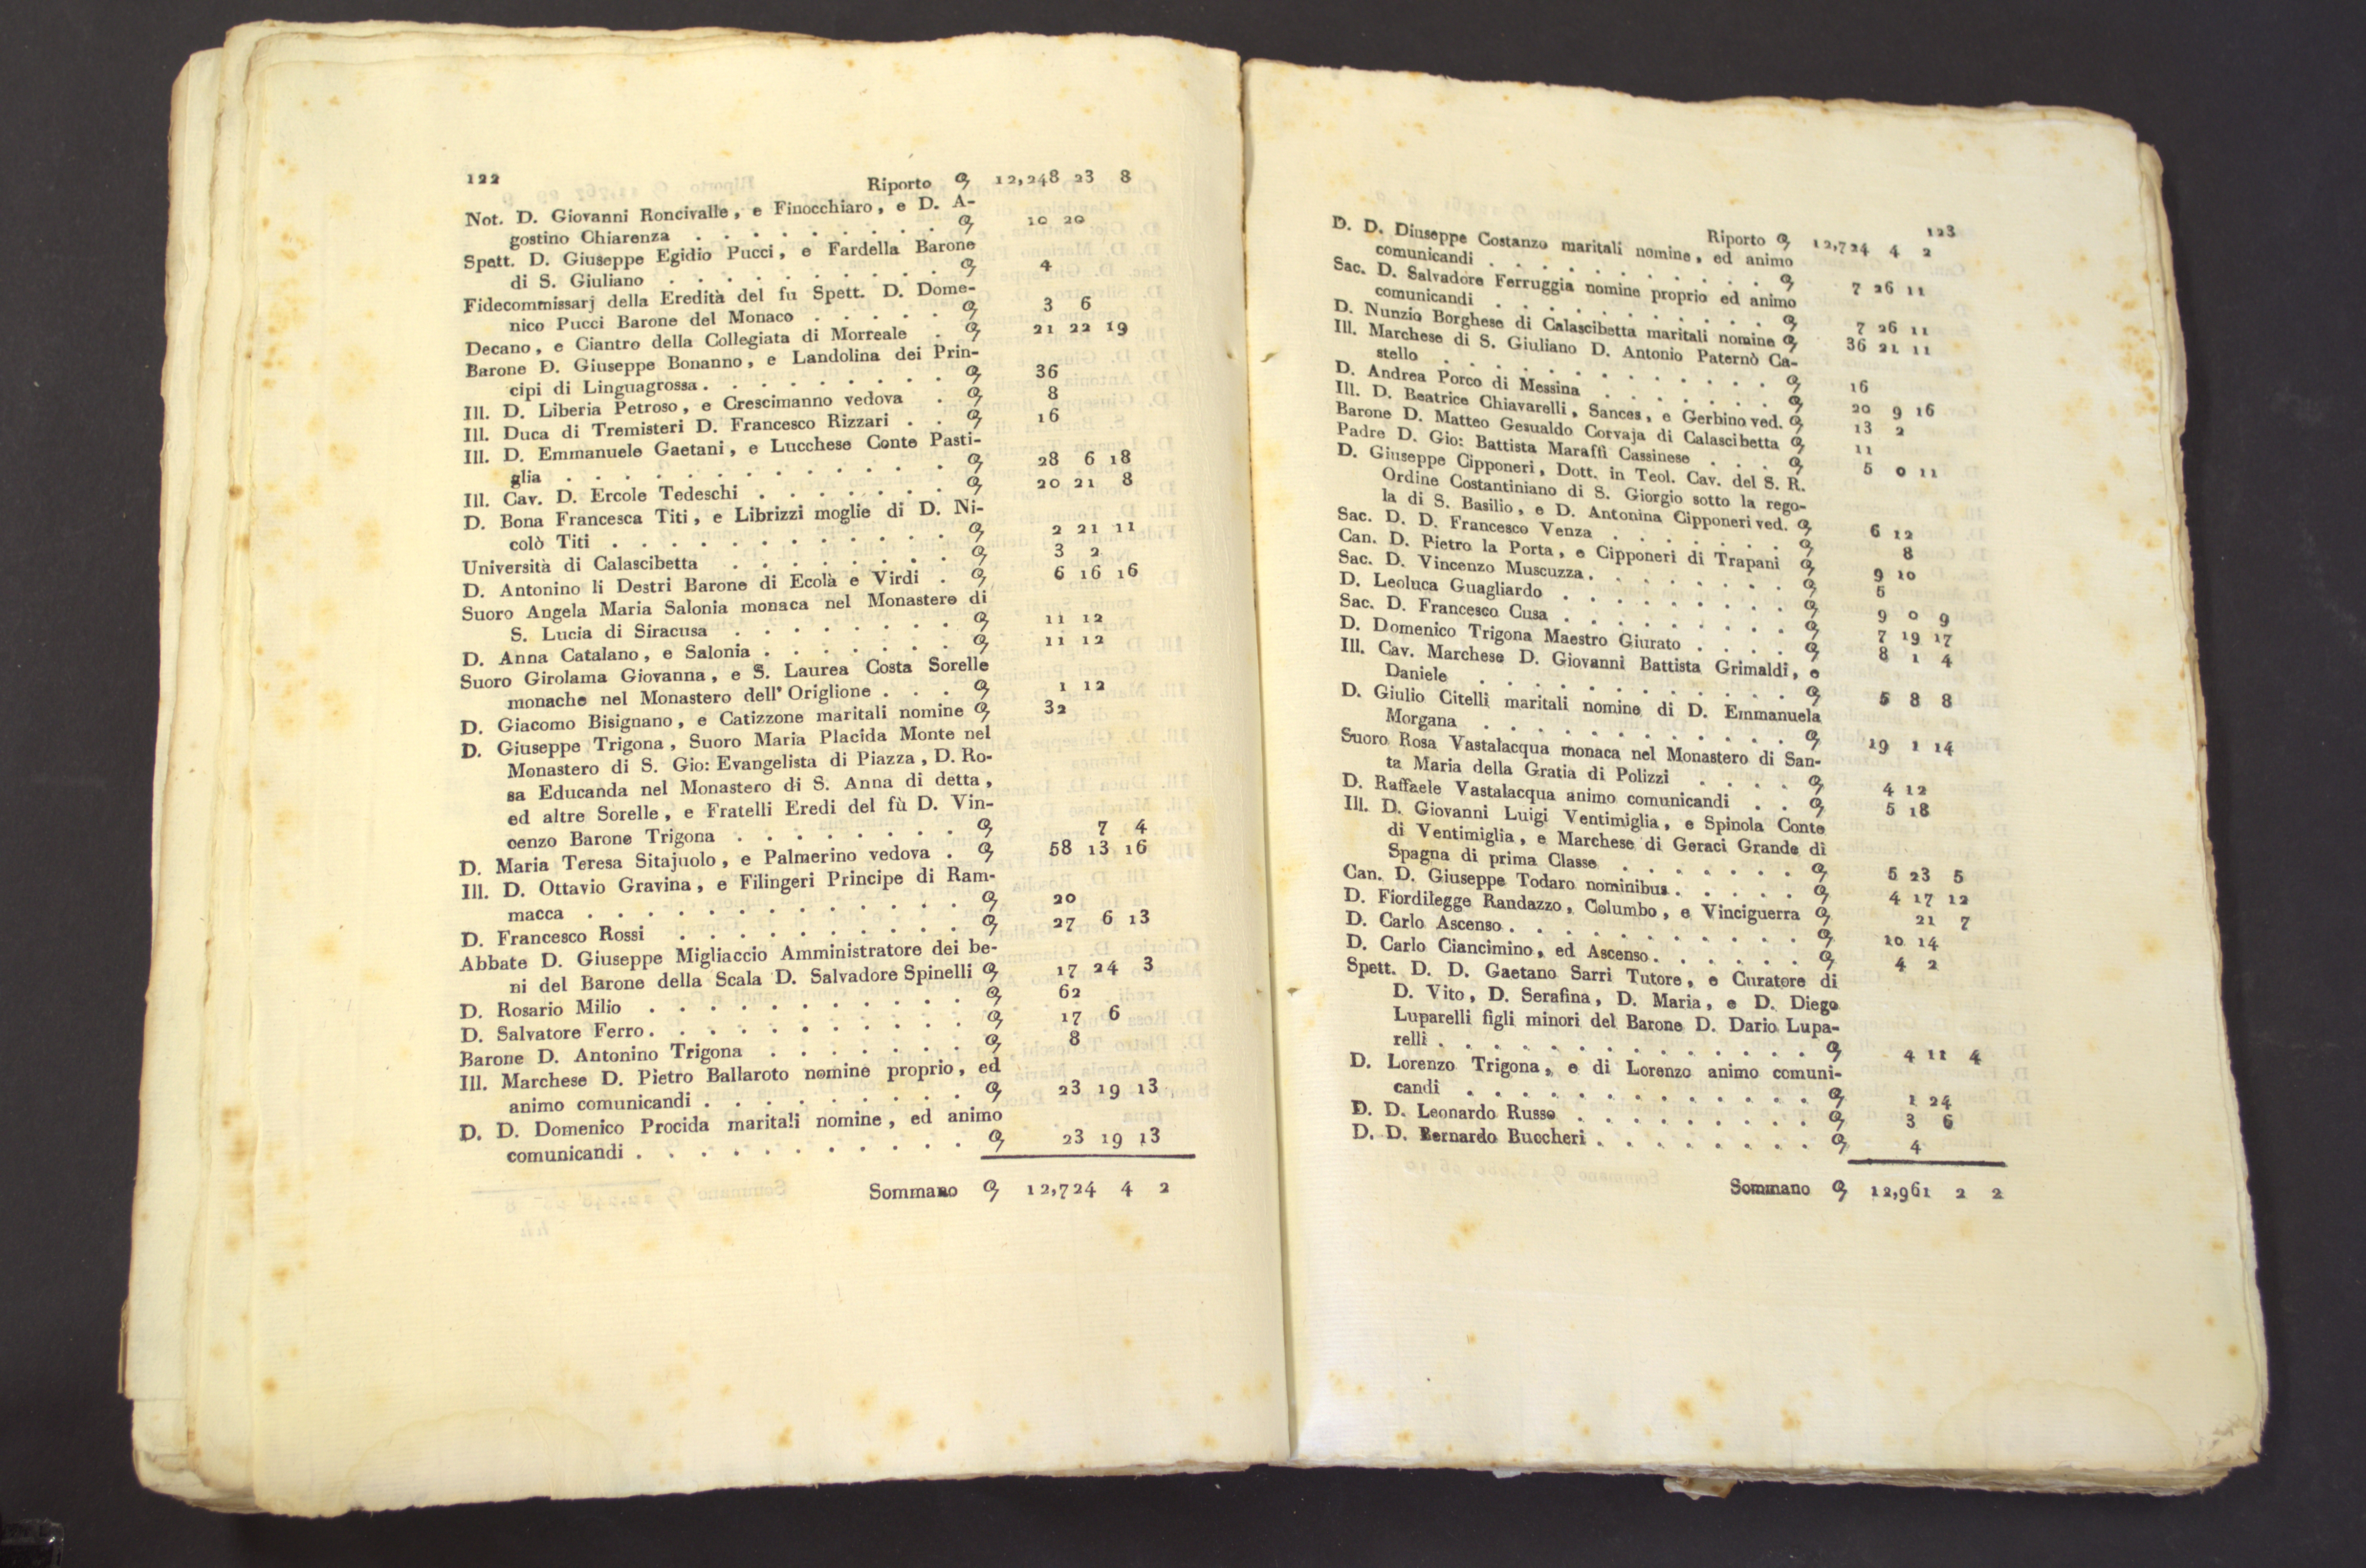 122 Riporto 12,248 23 8
Not. D. Giovanni Roncivalle, e Finocchiaro, e D. A-
gostino Chiarenza . . . . . . . . . 10 20
Spett. D. Giuseppe Egidio Pucci, e Fardella Barone
di S. Giuliano . . . . . . . . . 4
Fidecommissarj della Eredità del fu Spett. D. Dome-
nico Pucci Barone del Monaco . . . . . 3 6
Decano, e Ciantro della Collegiata di Morreale . 21 22 19
Barone D. Giuseppe Bonanno, e Landolina dei Prin-
cipi di Linguagrossa . . . . . . . . . 36
Ill. D. Liberia Petroso, e Crescimanno vedova . 8
Ill. Duca di Tremisteri D. Francesco Rizzari . . 16
Ill. D. Emmanuele Gaetani, e Lucchese Conte Pasti-
glia . . . . . . . . . . . . . 28 6 18
Ill. Cav. D. Ercole Tedeschi . . . . . . . 20 21 8
D. Bona Francesca Titi, e Librizzi moglie di D. Ni-
colò Titi . . . . . . . . . . . . 2 21 11
Università di Calascibetta . . . . . . . . 3 2
D. Antonino li Destri Barone di Ecola e Virdi . 6 16 16
Suoro Angela Maria Salonia monaca nel Monastero di
S. Lucia di Siracusa . . . . . . . . 11 12
D. Anna Catalano, e Salonia . . . . . . . 11 12
Suoro Girolama Giovanna, e S. Laurea Costa Sorelle
monache nel Monastero dell' Origlione . . . . 1 12
D. Giacomo Bisignano, e Catizzone maritali nomine 32
D. Giuseppe Trigona, Suoro Maria Placida Monte nel
Monastero di S. Gio: Evangelista di Piazza, D. Ro-
sa Educanda nel Monastero di S. Anna di detta,
ed altre Sorelle, e Fratelli Eredi del fù D. Vin-
cenzo Barone Trigona . . . . . . . . 7 4
D. Maria Teresa Sitajuolo, e Palmerino vedova . 58 13 16
Ill. D. Ottavio Gravina, e Filingeri Principe di Ram-
macca . . . . . . . . . . . . . 20
D. Francesco Rossi . . . . . . . . . . 27 6 13
Abbate D. Giuseppe Migliaccio Amministratore dei be-
ni del Barone della Scala D. Salvadore Spinelli 17 24 3
D. Rosario Milio . . . . . . . . . . . 62
D. Salvatore Ferro . . . . . . . . . . . 17 6
Barone D. Antonino Trigona . . . . . . . 8
Ill. Marchese D. Pietro Ballaroto nomine proprio, ed
animo comunicandi . . . . . . . . . 23 19 13
D. D. Domenico Procida maritali nomine, ed animo
comunicandi . . . . . . . . . . . 23 19 13
Sommano 12,724 4 2
123
Riporto 12,724 4 2
D. D. Diuseppe Costanzo maritali nomine, ed animo
comunicandi . . . . . . . . . . 7 26 11
Sac. D. Salvadore Ferruggia nomine proprio ed animo
comunicandi . . . . . . . . . . 7 26 11
D. Nunzio Borghese di Calascibetta maritali nomine 36 21 11
Ill. Marchese di S. Giuliano D. Antonio Paternò Ca-
stello . . . . . . . . . . . . . 16
D. Andrea Porco di Messina . . . . . . . 20 9 16
Ill. D. Beatrice Chiavarelli, Sances, e Gerbino ved. 13 2
Barone D. Matteo Gesualdo Corvaja di Calascibetta 11
Padre D. Gio: Battista Maraffi Cassinese . . . . 5 0 11
D. Giuseppe Cipponeri, Dott. in Teol. Cav. del S. R.
Ordine Costantiniano di S. Giorgio sotto la rego-
la di S. Basilio, e D. Antonina Cipponeri ved. 6 12
Sac. D. D. Francesco Venza . . . . . . . 8
Can. D. Pietro la Porta, e Cipponeri di Trapani 9 10
Sac. D. Vincenzo Muscuzza . . . . . . . . 5
D. Leoluca Guagliardo . . . . . . . . . 9 0 9
Sac. D. Francesco Cusa . . . . . . . . . 7 19 17
D. Domenico Trigona Maestro Giurato . . . . 8 1 4
Ill. Cav. Marchese D. Giovanni Battista Grimaldi, e
Daniele . . . . . . . . . . . . 5 8 8
D. Giulio Citelli maritali nomine di D. Emmanuela
Morgana . . . . . . . . . . . . 19 1 14
Suoro Rosa Vastalacqua monaca nel Monastero di San-
ta Maria della Gratia di Polizzi . . . . 4 12
D. Raffaele Vastalacqua animo comunicandi . . 5 18
Ill. D. Giovanni Luigi Ventimiglia, e Spinola Conte
di Ventimiglia, e Marchese di Geraci Grande di
Spagna di prima Classe . . . . . . . 5 23 5
Can. D. Giuseppe Todaro nominibus . . . . . 4 17 12
D. Fiordilegge Randazzo, Columbo, e Vinciguerra 21 7
D. Carlo Ascenso . . . . . . . . . . . 10 14
D. Carlo Ciancimino, ed Ascenso . . . . . . 4 2
Spett. D. D. Gaetano Sarri Tutore, e Curatore di
D. Vito, D. Serafina, D. Maria, e D. Diego
Luparelli figli minori del Barone D. Dario Lupa-
relli . . . . . . . . . . . . . . 4 11 4
D. Lorenzo Trigona, e di Lorenzo animo comuni-
candi . . . . . . . . . . . . . 1 24
D. D. Leonardo Russo . . . . . . . . . 3 6
D. D. Bernardo Buccheri . . . . . . . . 4
Sommano 12,961 2 2